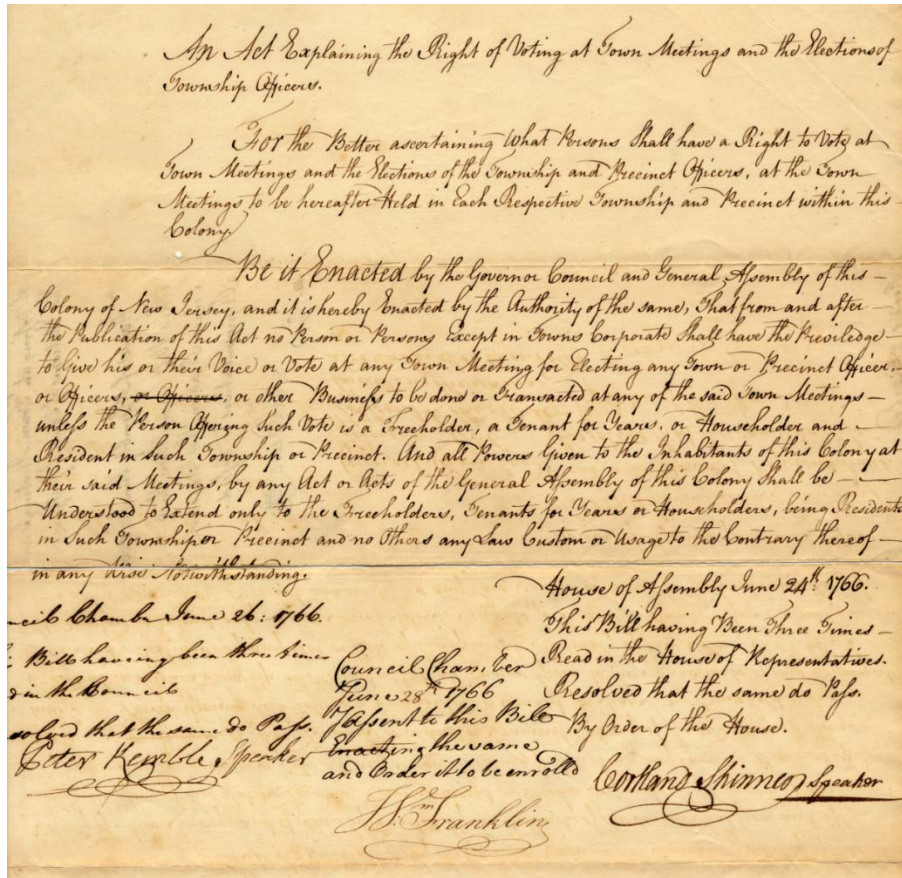 An Act Explaining the Right of Voting at Town Meetings and the Elections of
Township Officers.
For the Better ascertaining What Persons Shall have a Right to Vote at
Town Meetings and the Elections of the Township and Precinct Officers, at the Town
Meetings to be hereafter Held in Each Respective Township and Precinct within this
Colony.
Be it Enacted by the Governor Council and General Assembly of this
Colony of New Jersey, and it is hereby Enacted by the Authority of the same, That from and after
the Publication of this Act no Person or Persons Except in Towns Corporate Shall have the Priviledge
to Give his or their Voice or Vote at any Town Meeting for Electing any Town or Precinct Officer,
or Officers, or Officers, or other Business to be done or Transacted at any of the said Town Meetings
unless the Person Offering Such Vote is a Freeholder, a Tenant for Years, or Householder and
Resident in Such Township or Precinct. And all Powers Given to the Inhabitants of this Colony at
their said Meetings, by any Act or Acts of the General Assembly of this Colony Shall be
Understood to Extend only to the Freeholders, Tenants for Years or Householders, being Residents
in Such Township or Precinct and no Others any Law Custom or Usage to the Contrary thereof
in any Wise Notwithstanding.
House of Assembly June 24th. 1766.
This Bill having Been Three Times
Read in the House of Representatives.
Resolved that the same do Pass.
By Order of the House.
Cortland Skinner, Speaker
ncil Chamber June 26: 1766.
Bill having been three times
d in the Council
solved that the same do Pass.
Peter Kemble, Speaker
Council Chamber
June 28th 1766
I Assent to this Bill
Enacting the same
and Order it to be enrolled
Wm Franklin